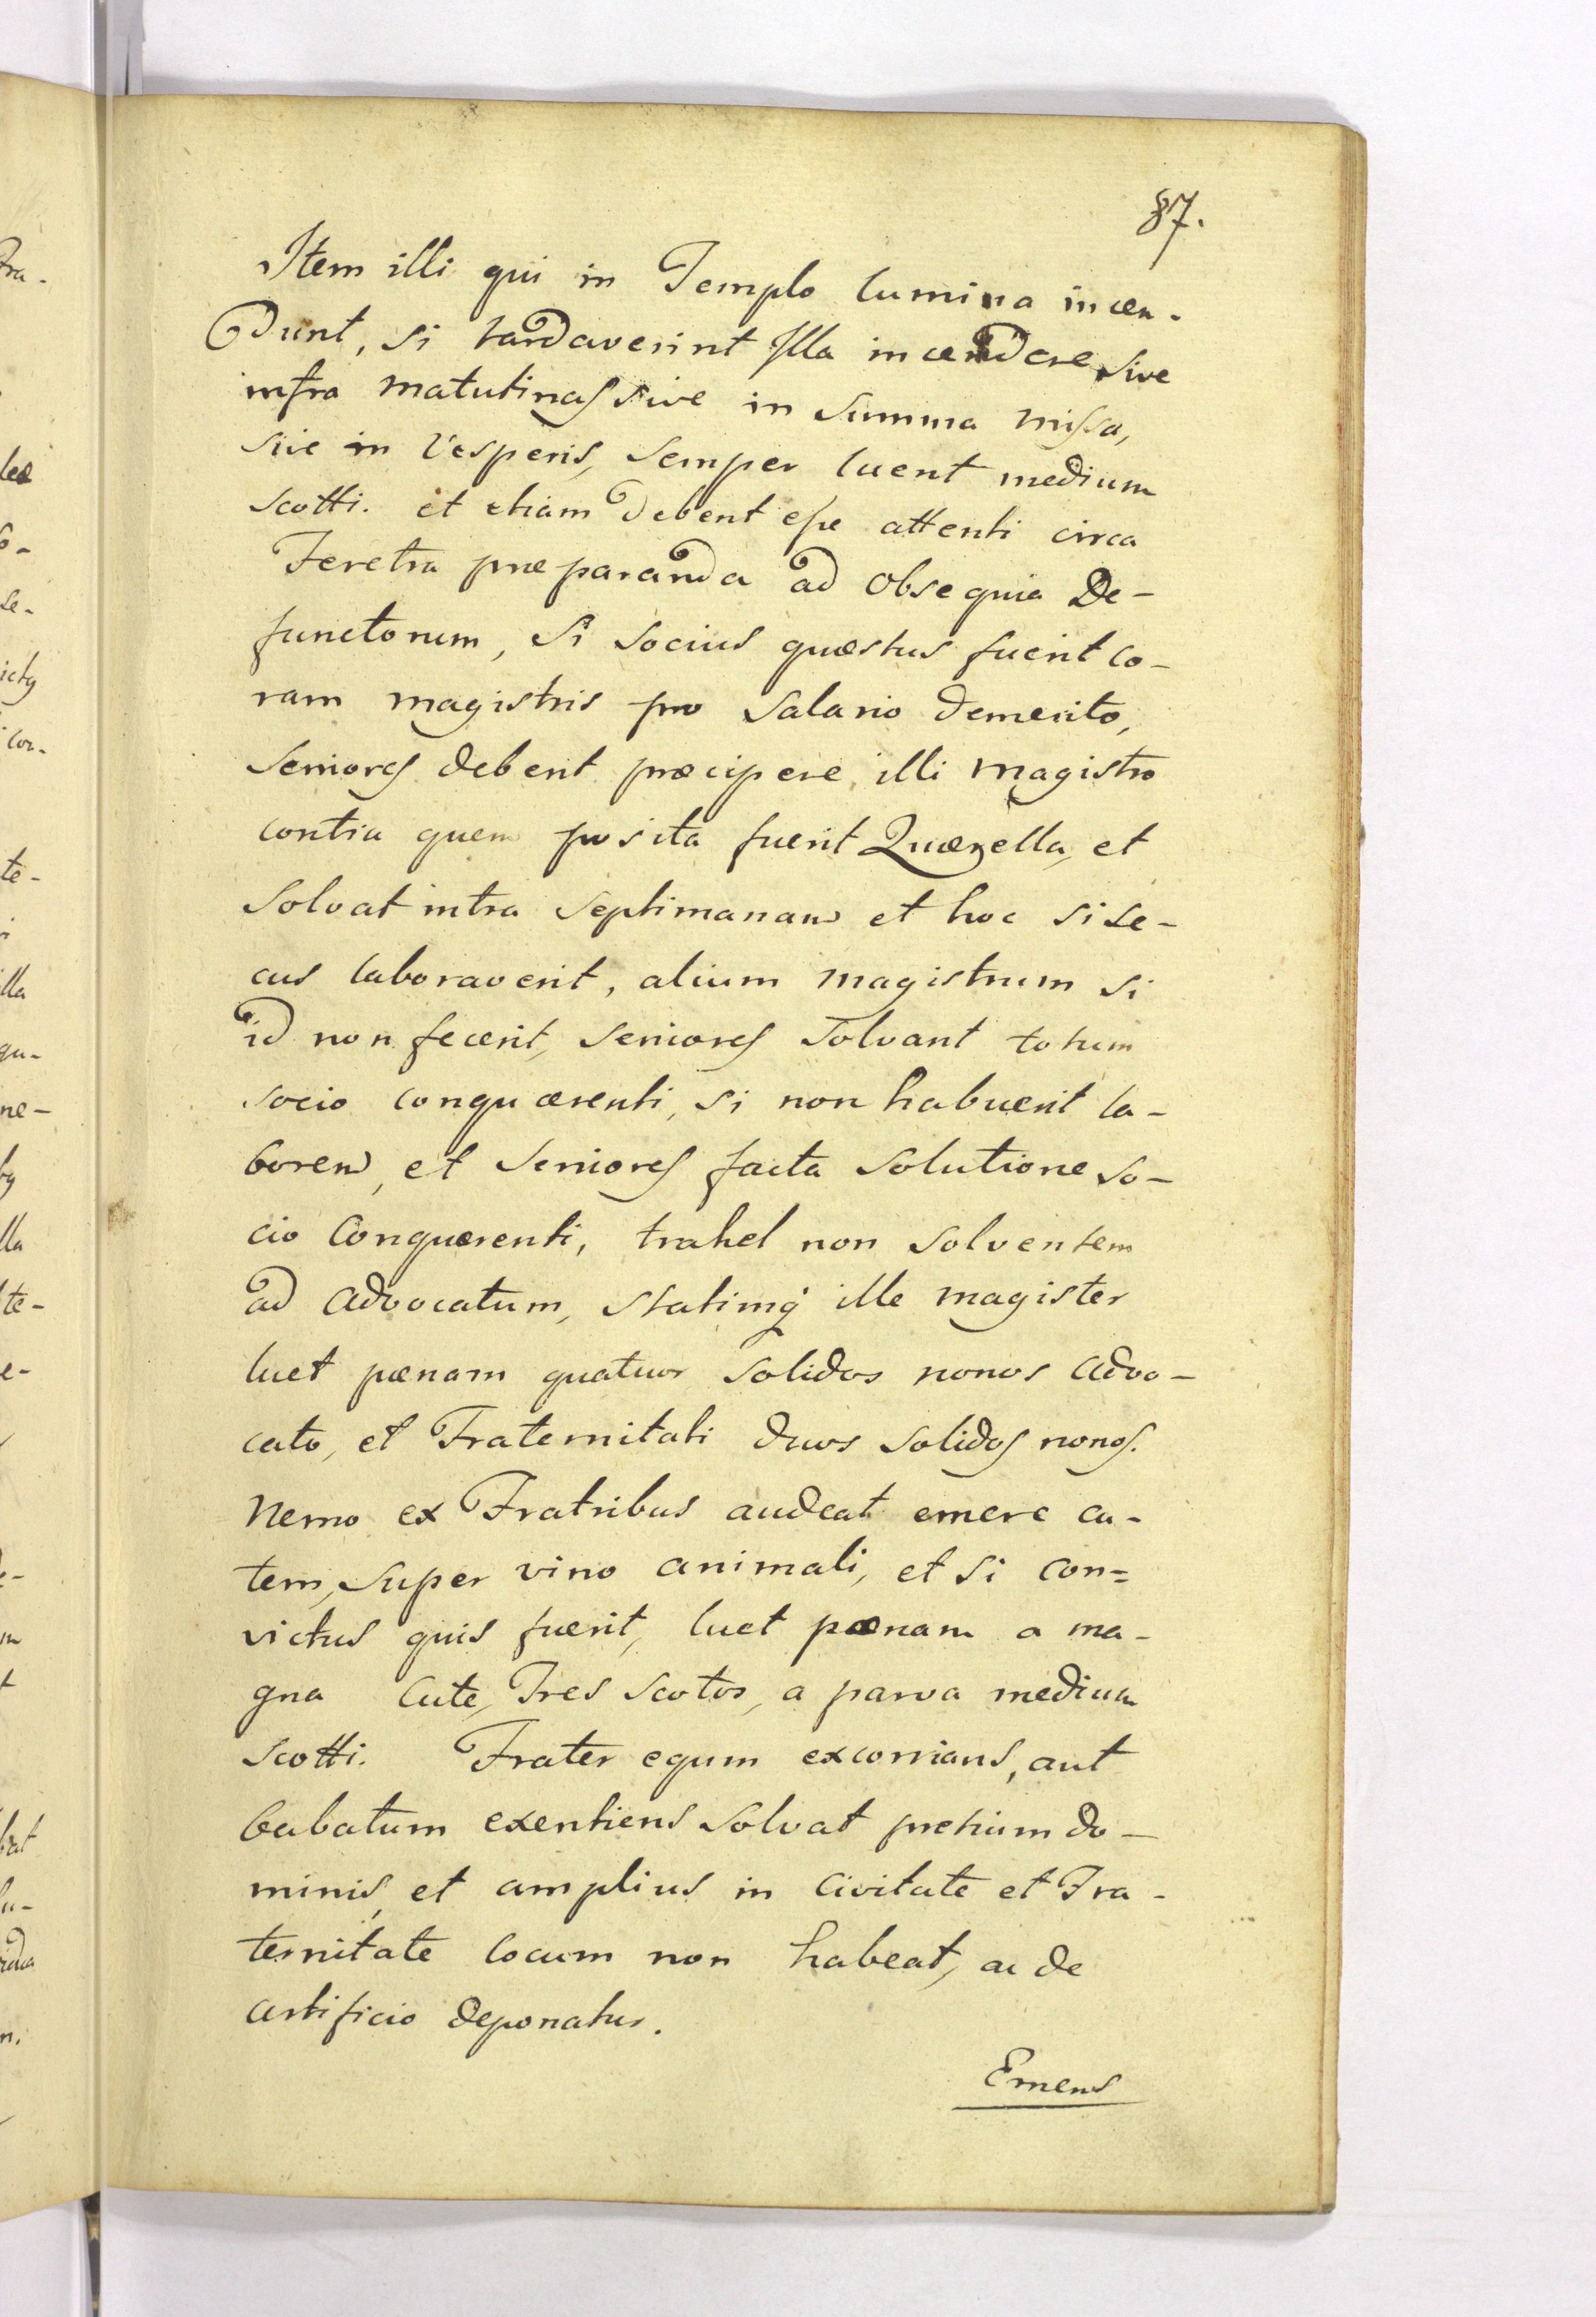 87.
Item illi qui in Templo lumina incen-
dunt, si tardaverint Illa incendere sive
infra matutinas sive in summa missa,
sive in Vesperis, semper luent medium
scotti. et etiam debent esse attenti circa
Feretra præparanda ad obsequia De-
functorum, Si socius quæstus fuerit co-
ram magistris pro salario demerito,
Seniores debent præcipere illi magistro
contra quem posita fuerit Quærella, et
solvat intra septimanam et hoc si se-
cus laboraverit, alium magistrum si
id non fecerit, seniores solvant totum
socio conquærenti, si non habuerit la-
borem, et seniores facta solutione so-
cio Conquærenti, trahet non solventem
ad Advocatum, statimq ille magister
luet pænam quatuor solidos nonos Advo-
cato, et Fraternitati duos solidos nonos.
Nemo ex Fratribus audeat emere cu-
tem, super vino animali, et si con=
victus quis fuerit, luet pænam a ma-
gna Cute, Tres scotos, a parva medium
scotti. Frater equm excorrians, aut
Cubatum exentiens solvat pretium do-
minis, et amplius in Civitate et Fra-
ternitate locum non habeat, ac de
artificio deponatur.
Emens